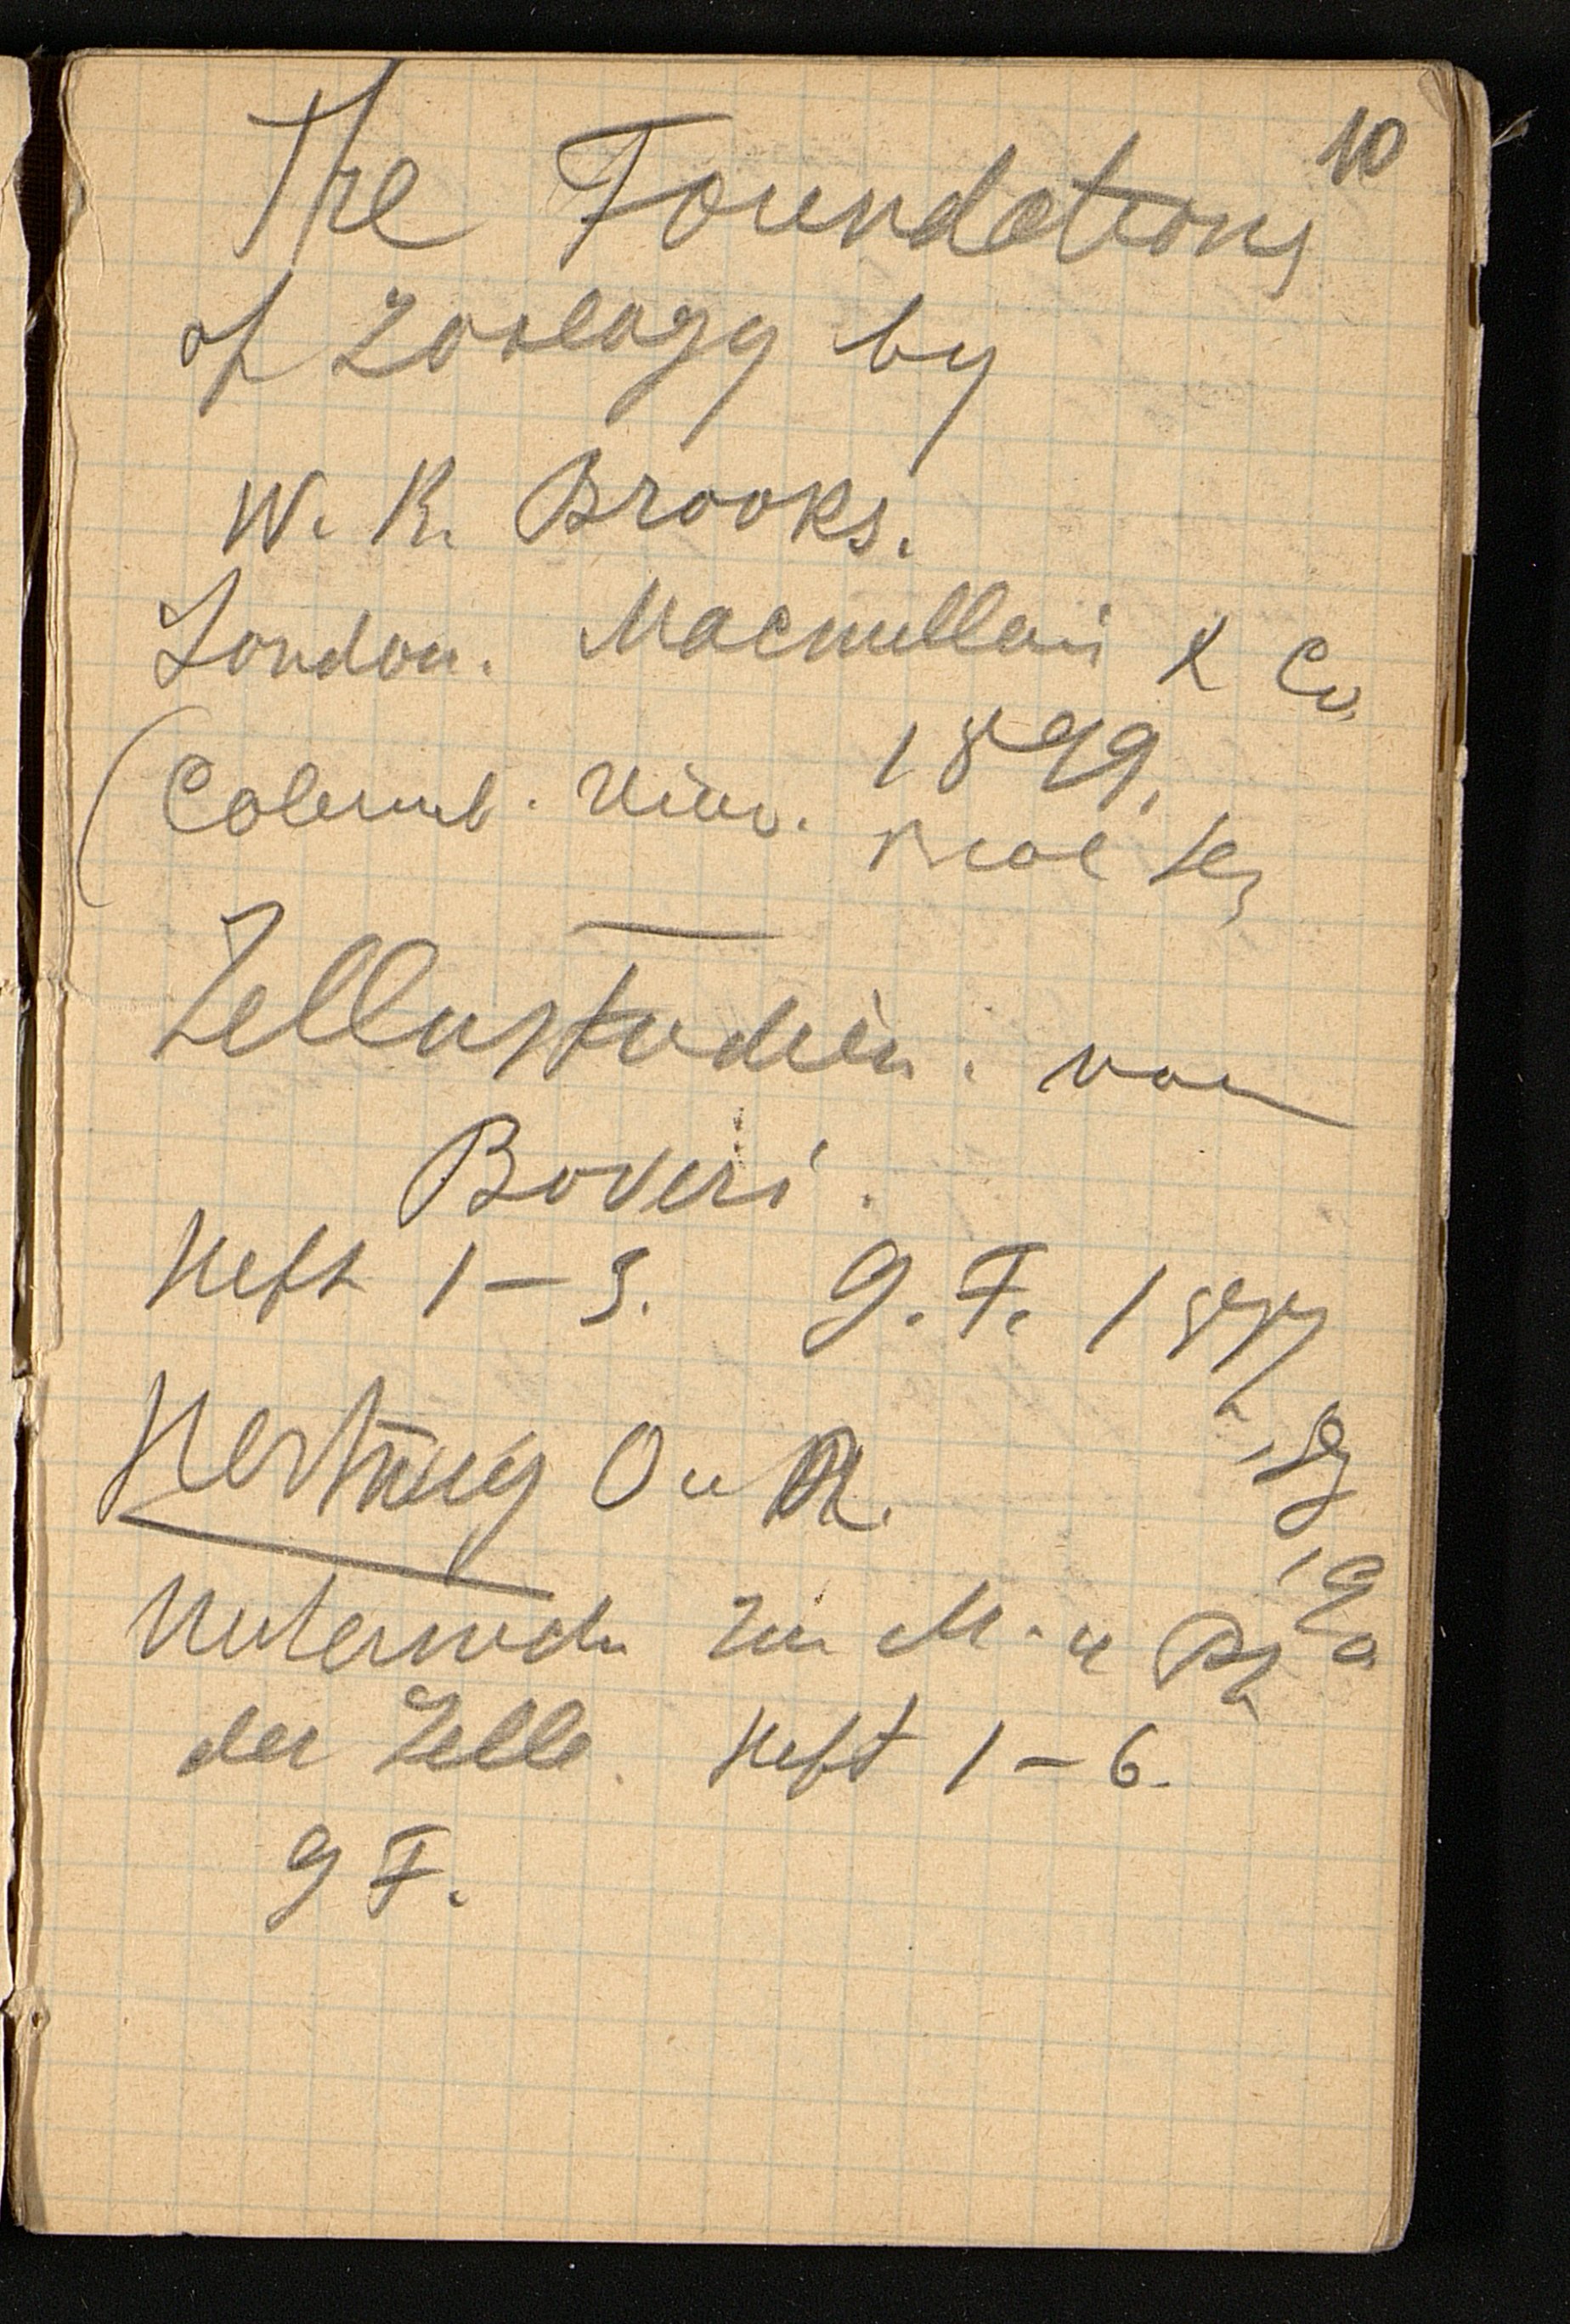 10
The Foundations
of Zoology by
W. K. Brooks.
London. Macmillan & Co
1899.
(Columb. Univ. Biol Ser
Zellenstudien. von
Boveri.
Heft 1-3. G. F. 1887
188
1890
Hertwig O u R.
Untersuch zur M. u Ph
der Zelle. Heft 1-6.
G F.